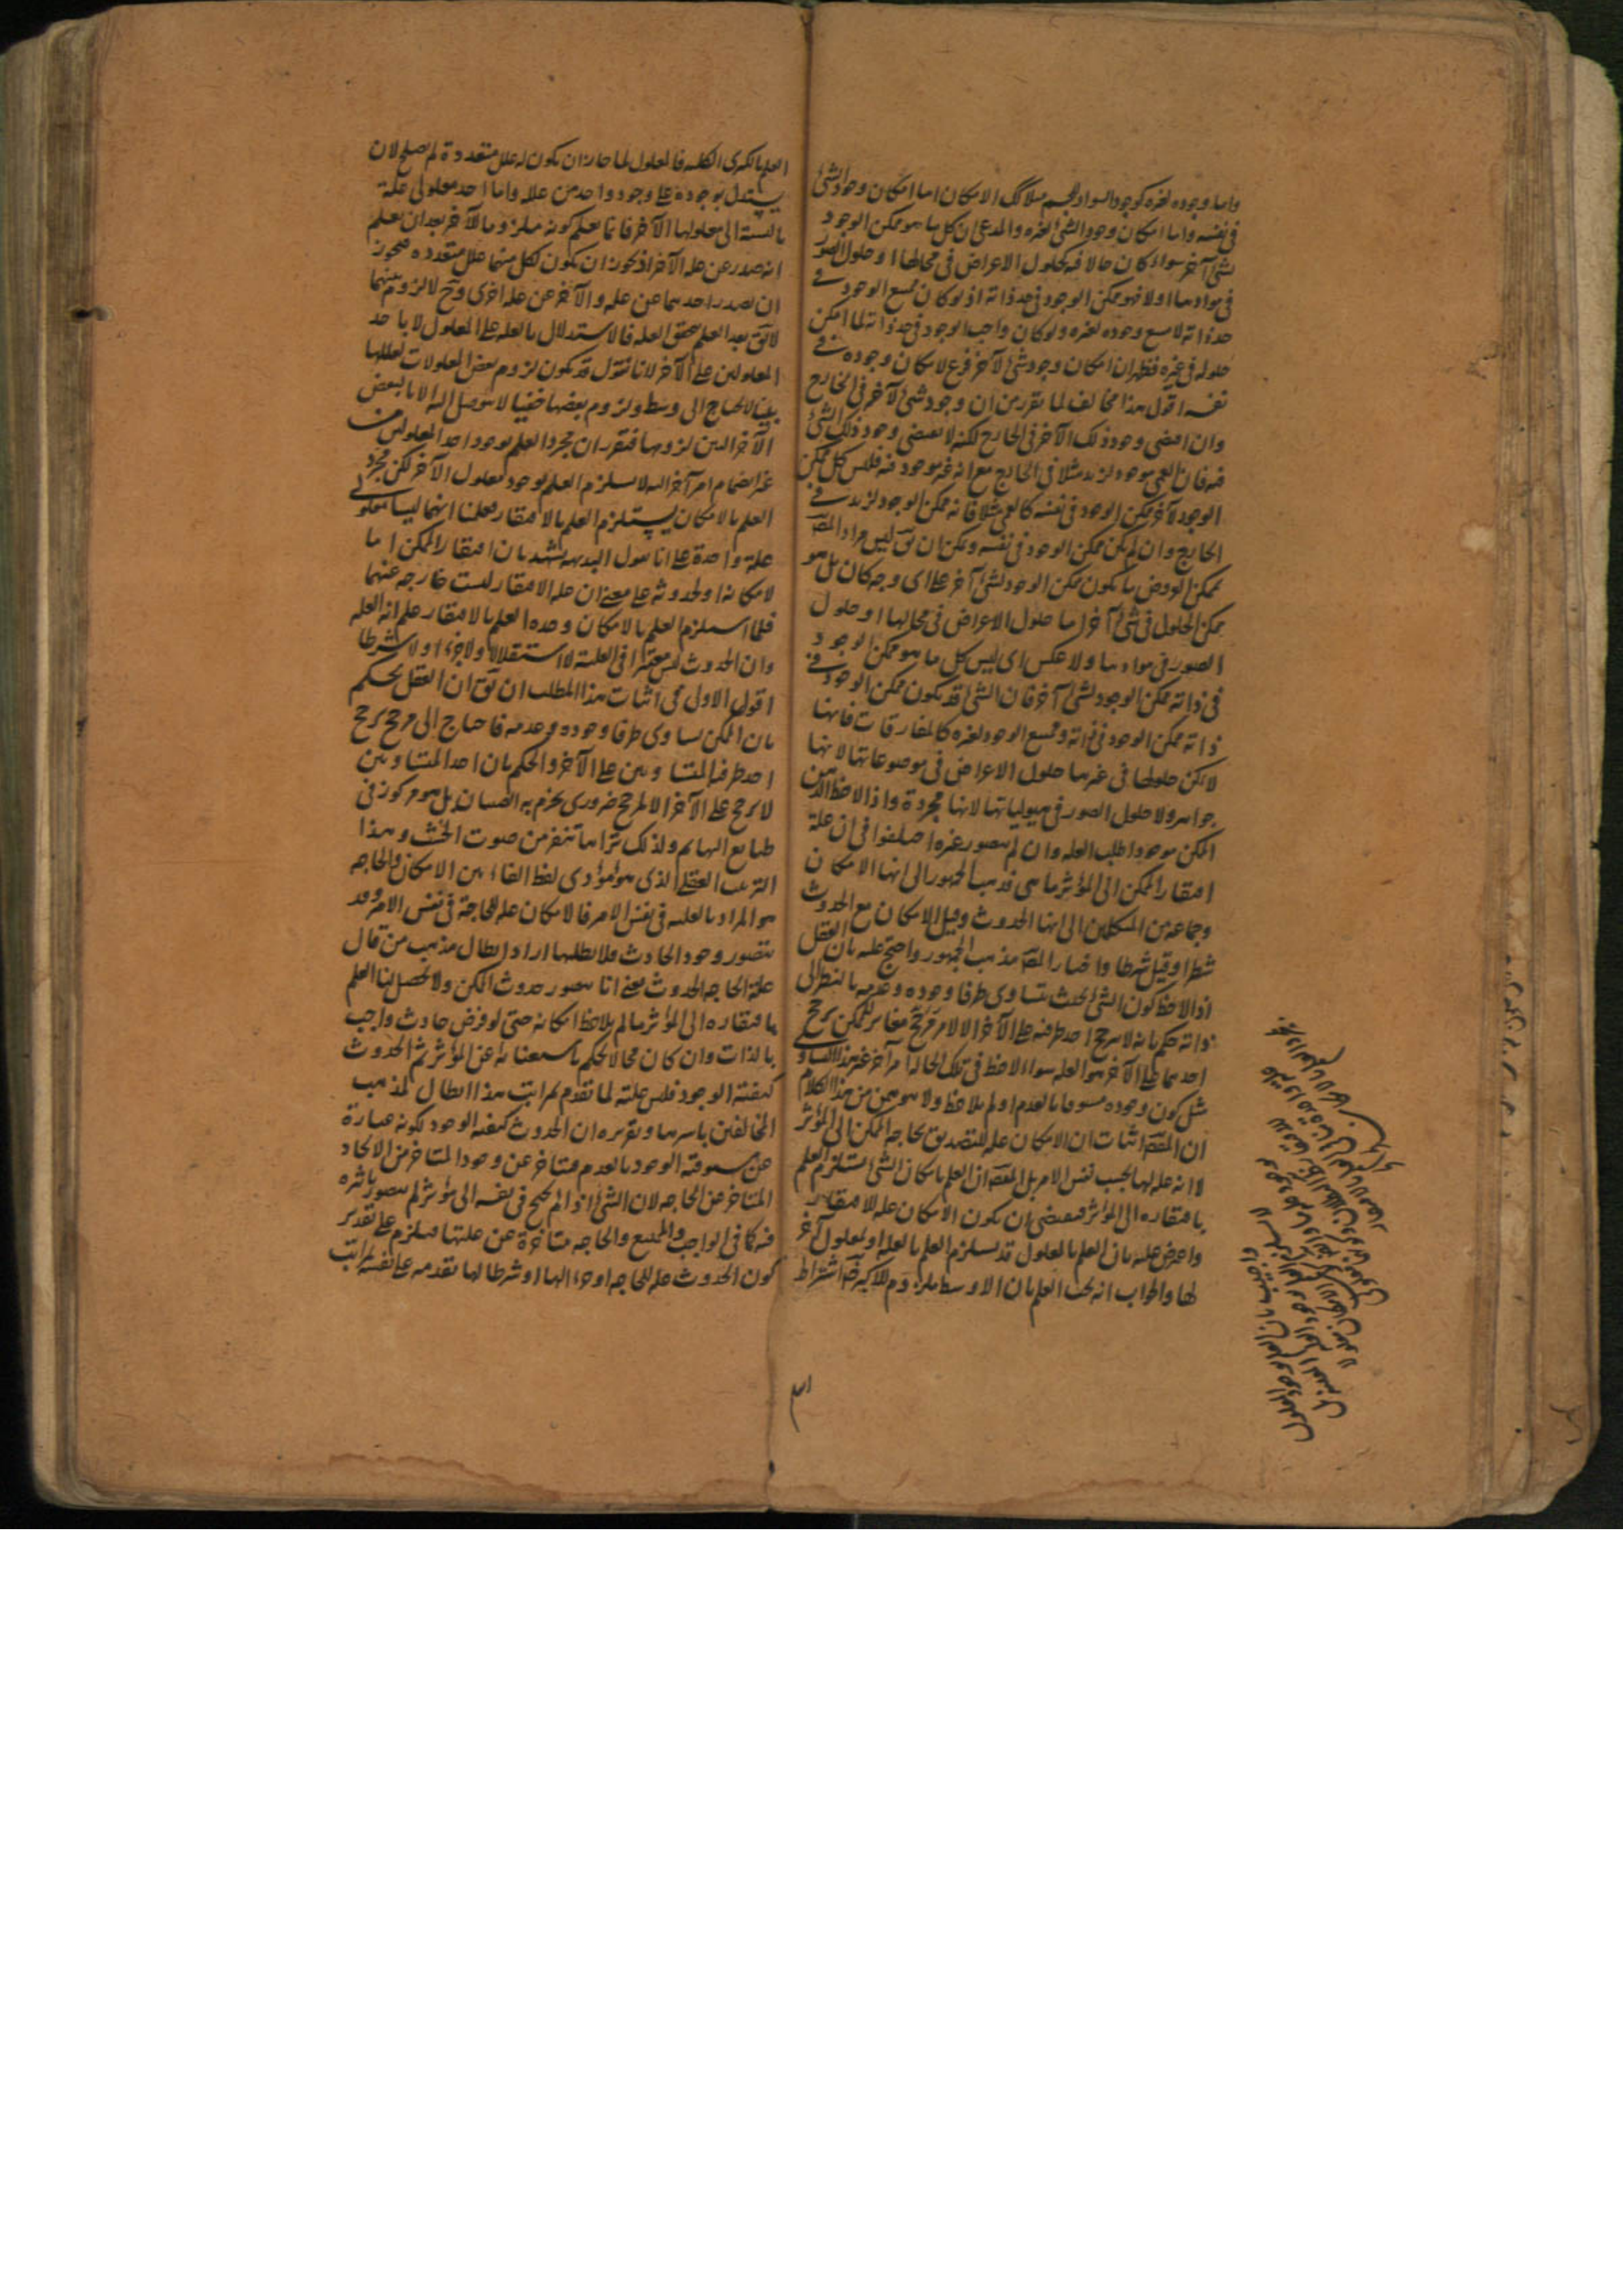 واما وجوده لغيره كوجود السواد للجسم فلذلك الامكان اما امكان وجود الشئ
فى نفسه واما امكان وجود الشئ لغيره والمدعى ان كل ما هو ممكن الوجود
لشئ آخر سواء كان حالا فيه كحلول الاعراض فى محالها او حلول الصور
فى موادها او لا فهو ممكن الوجود فى حد ذاته اذ لو كان ممتنع الوجود فى
حد ذاته لامتنع وجوده لغيره ولو كان واجب الوجود فى حد ذاته لما امكن
حلوله فى غيره فظهر ان امكان وجود شئ لآخر فرع لامكان وجوده فى
نفسه اقول هذا مخالف لما تقرر من ان وجود شئ لآخر فى الخارج
وان اقتضى وجود ذلك الآخر فى الخارج لكنه لا يقتضى وجود ذلك الشئ
فيه فان العمى موجود لزيد مثلا فى الخارج مع انه غير موجود فيه فليس كل ممكن
الوجود لآخر ممكن الوجود فى نفسه كالعمى مثلا فانه ممكن الوجود لزيد فى
الخارج وان لم يكن ممكن الوجود فى نفسه ويمكن ان يق ليس مراد المص
بممكن العروض ما يكون ممكن الوجود لشئ آخر على اى وجه كان بل هو
ممكن الحلول فى شئ آخر اما حلول الاعراض فى محالها او حلول
الصور فى موادها ولا عكس اى ليس كل ما هو ممكن الوجود
فى ذاته ممكن الوجود لشئ آخر فان الشئ قد يكون ممكن الوجود فى
ذاته ممكن الوجود فى ذاته وممتنع الوجود لغيره كالمفارقات فانها
لا يمكن حلولها فى غيرها حلول الاعراض فى موضوعاتها لانها
جواهر ولا حلول الصور فى هيولياتها لانها مجردة واذا لاحظ الذهن
الممكن موجودا طلب العلة وان لم يتصور غيره اختلفوا فى ان علة
افتقار الممكن الى المؤثر ما هى فذهب الجمهور الى انها الامكان
وجماعة من المتكلمين الى انها الحدوث وقيل الامكان مع الحدوث
شطرا وقيل شرطا واختار المص مذهب الجمهور واحتج عليه بان العقل
اذا لاحظ كون الشئ بحيث يتساوى طرفا وجوده وعدمه بالنظر الى
ذاته حكم بانه لا يترجح احد طرفيه على الآخر الا لامر مرجح مغاير للممكن يرجح
احدهما على الآخر هو العلة سواء لاحظ فى تلك الحالة امرا آخر غير هذا التساوى
مثل كون وجوده مسبوقا بالعدم او لم يلاحظ ولا هو من هذا الكلام
ان المقص اثبات ان الامكان علة للتصديق بحاجة الممكن الى المؤثر
لا انه علة لها بحسب نفس الامر بل المقص ان العلم بامكان الشئ يستلزم العلم
بافتقاره الى المؤثر فيقتضى ان يكون الامكان علة للافتقار
واعترض عليه بان العلم بالمعلول قد يستلزم العلم بالعلة او لمعلول آخر
لها والجواب انه يجب العلم بان الاوسط ملزوم للاكبر اشتراط
العلم بالكبرى الكلية فالمعلول لما جاز ان يكون له علل متعددة لم يصلح لان
يستدل بوجوده على وجود واحد من علله واما احد معلولى علة
بالنسبة الى معلولها الآخر فانما يعلم كونه ملزوما للآخر بعد ان يعلم
انه صدر عن علة الآخر اذ يجوز ان يكون لكل منهما علل متعددة فيجوز
ان يصدر احدهما عن علة والآخر عن علة اخرى وح لا لزوم بينهما
لا يق بعد العلم بتحقق العلة فالاستدلال بالعلة على المعلول لا باحد
المعلولين على الآخر لانا نقول قد يكون لزوم بعض المعلولات لعللها
بينا لا يحتاج الى وسط ولزوم بعضها خفيا لا يتوصل اليه الا بالبعض
الآخر البين لزومها فتقرر ان مجرد العلم بوجود احد المعلولين من
غير انضمام امر آخر اليه لا يستلزم العلم بوجود المعلول الآخر لكن مجرد
العلم بالامكان يستلزم العلم بالافتقار فعلمنا انهما ليسا معلولى
علة واحدة على انا نقول البديهة يشهد بان افتقار الممكن اما
لامكانه او لحدوثه على معنى ان علة الافتقار ليست خارجة عنهما
فلما استلزم العلم بالامكان وحده العلم بالافتقار علم انه العلة
وان الحدوث ليس معتبرا فى العلية لا استقلالا ولا جزءا ولا شرطا
اقول الاولى فى اثبات هذا المطلب ان يق ان العقل يحكم
بان الممكن تساوى طرفا وجوده وعدمه فاحتاج الى مرجح يرجح
احد طرفيه المتساويين على الآخر والحكم بان احد المتساويين
لا يترجح على الآخر الا لمرجح ضرورى يجزم به الصبيان بل هو مركوز فى
طبايع البهايم ولذلك تراها تنفر من صوت الخشب وهذا
الترتب العقلى الذى هو مؤدى لفظ الفاء بين الامكان والحاجة
هو المراد بالعلية فى نفس الامر فالامكان علة للحاجة فى نفس الامر وقد
يتصور وجود الحادث فلا يطلبها اراد ابطال مذهب من قال
علة الحاجة الحدوث يعنى انا نتصور حدوث الممكن ولا يحصل لنا العلم
بافتقاره الى المؤثر ما لم يلاحظ امكانه حتى لو فرض حادث واجب
بالذات وان كان محالا لحكم باستغنائه عن المؤثر ثم الحدوث
كيفية الوجود فليس علته لما تقدم بمراتب هذا ابطال لمذهب
المخالفين باسرها وتقريره ان الحدوث كيفية الوجود لكونه عبارة
عن مسبوقية الوجود بالعدم فيتاخر عن وجود المتاخر من الايجاد
المتاخر عن الحاجة لان الشئ اذا لم يحتج فى نفسه الى مؤثر لم يتصور تاثيره
فيه كما فى الواجب والممتنع والحاجة متاخرة عن علتها فيلزم على تقدير
كون الحدوث علة للحاجة او جزءا لها او شرطا لها تقدمه على نفسه بمراتب